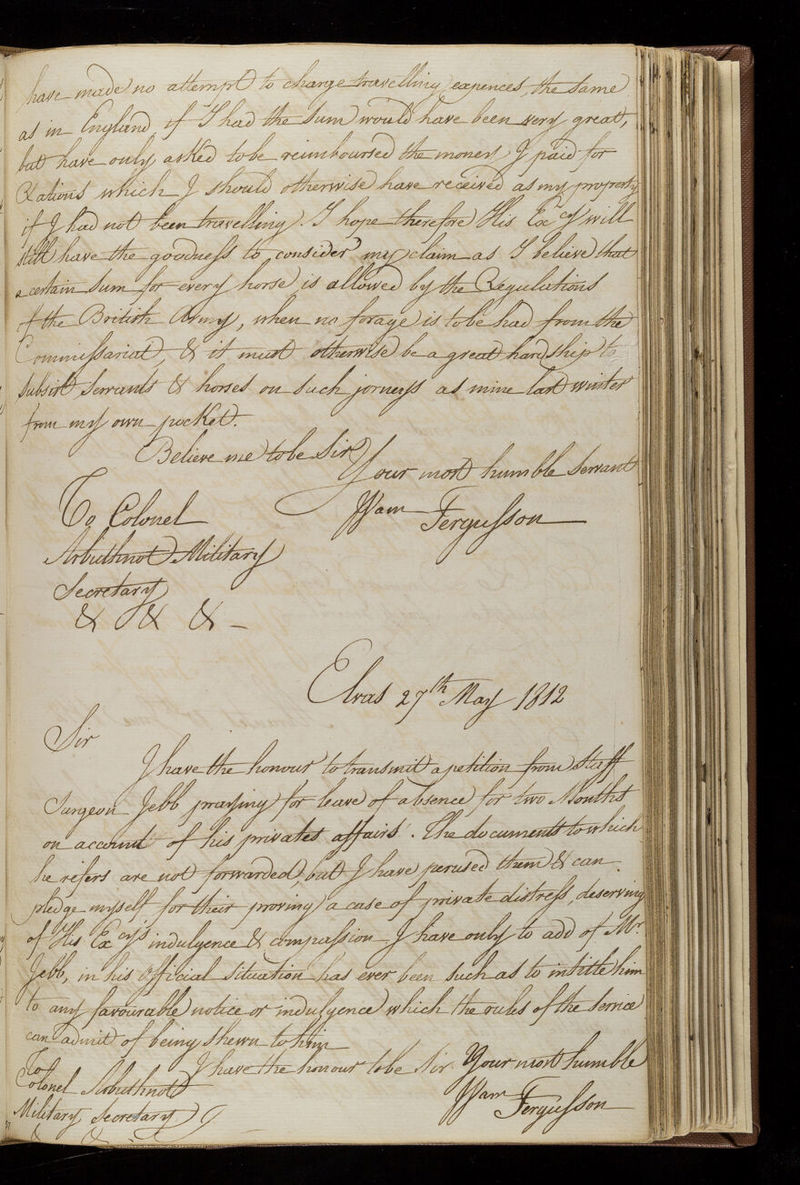 have made no attempt to charge travelling expences, the same
as in England, if I had the sum would have been very great,
but have only asked to be reimboursed the money I paid for
Rations which I should otherwise have received as my property
if I had not been travelling. I hope therefore His Excy will
still have the goodness to consider my claim as I believe that
a certain sum for every horse is allowed by the Regulations
of the British Army, when no forage is to be had from the
Commissariat, & it must otherwise be a great hardship to
subsist servants & horses on such jorneys as mine last winter
from my own pocket.
Believe me to be Sir
Your most humble Servant
Wam Fergusson
To Colonel
Arbuthnot Military
Secretary
& & &
Elvas 27th May 1812
Sir
I have the honour to transmit a petition from Staff
Surgeon Jebb praying for leave of absence for two Months
on account of his privates affairs. The documents to which
he refers are not forwarded, but I have perused them & can
pledge myself for their proving a case of private distress, deserving
of His Excys indulgence & compassion I have only to add of Mr
Jebb, in his official situation has ever been such as to intitle him
to any favourable notice or indulgence which the rules of the service
can admit of being shewn to him
I have the honour to be Sir Your most humble
Wam Fergusson
To
Colonel Arbuthnot
Military Secretary
& &